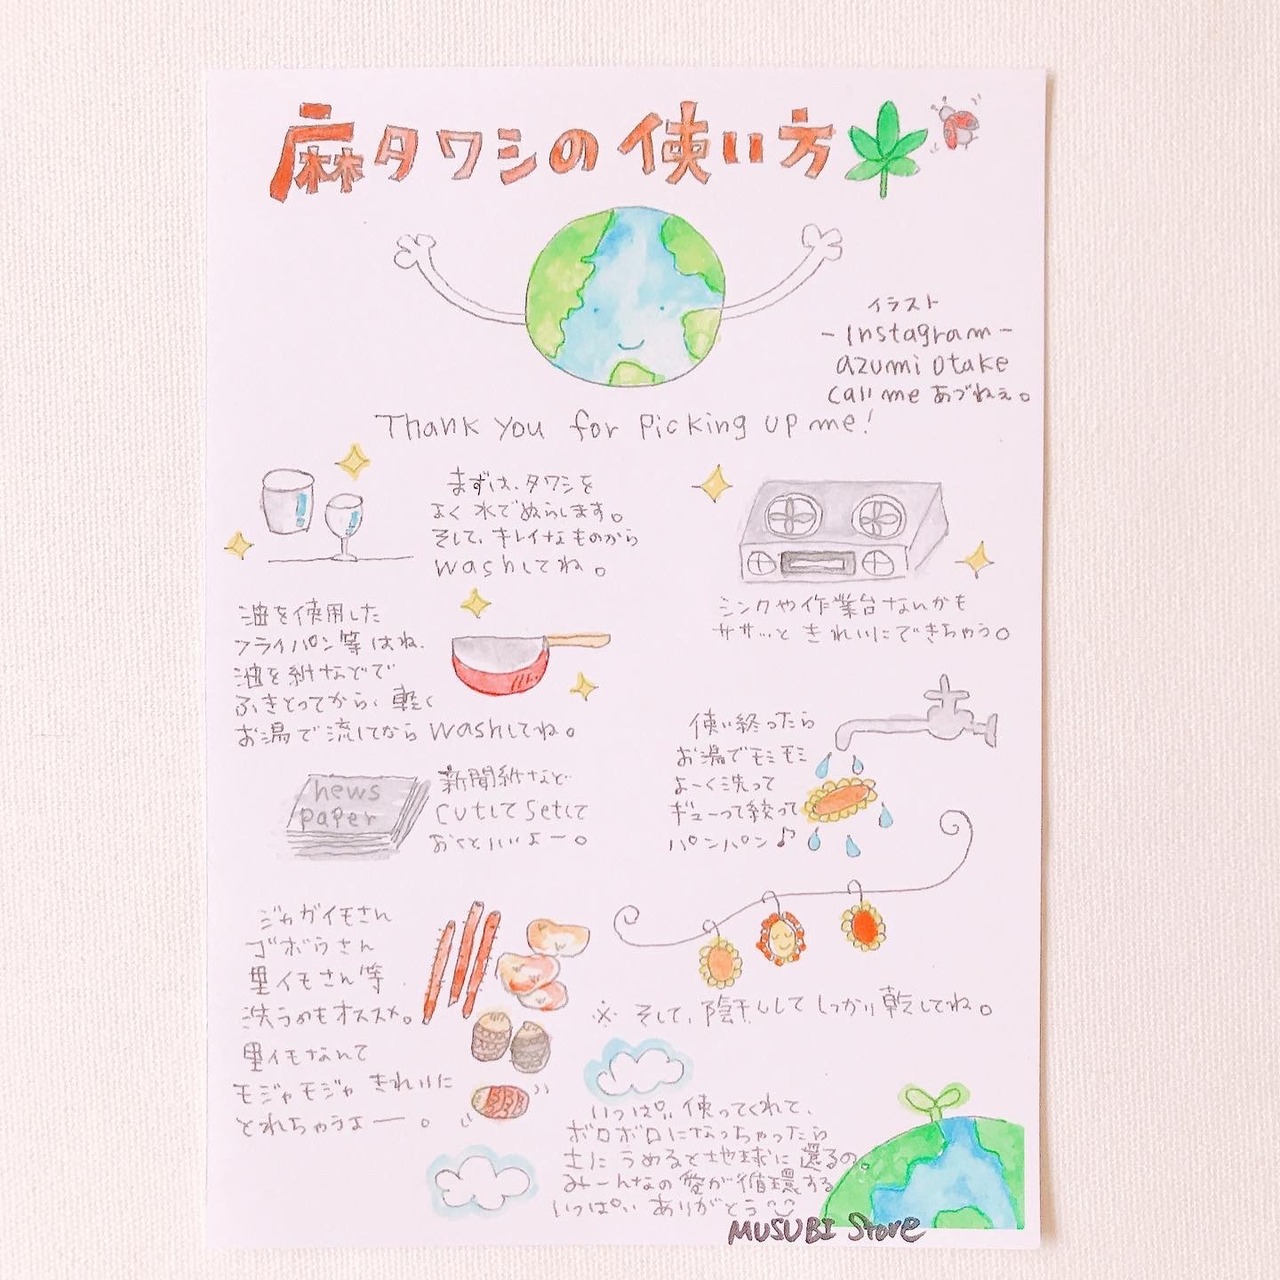 麻タワシの使い方
イラスト
-Instagram-
azumi otake
call me あづねぇ。
Thank you for picking up me!
まずは、タワシを
よく水でぬらします。
そして、キレイなものから
washしてね。
シンクや作業台なんかも
ササッときれいにできちゃう。
油を使用した
フライパン等はね、
油を紙などで
ふきとってから、軽く
お湯で流してから washしてね。
news
paper
新聞紙など
cutしてsetして
おくといいよー。
使い終ったら
お湯でモミモミ
よーく洗って
ギューって絞って
パンパン♪
ジャガイモさん
ゴボウさん
里イモさん等
洗うのもオススメ。
里イモなんて
モジャモジャ きれいに
とれちゃうよー。
※ そして、陰干しして しっかり乾してね。
いっぱい使ってくれて、
ボロボロになっちゃったら
土に うめると地球に還るの。
みーんなの愛が循環する
いっぱい ありがとう
MUSUBI Store